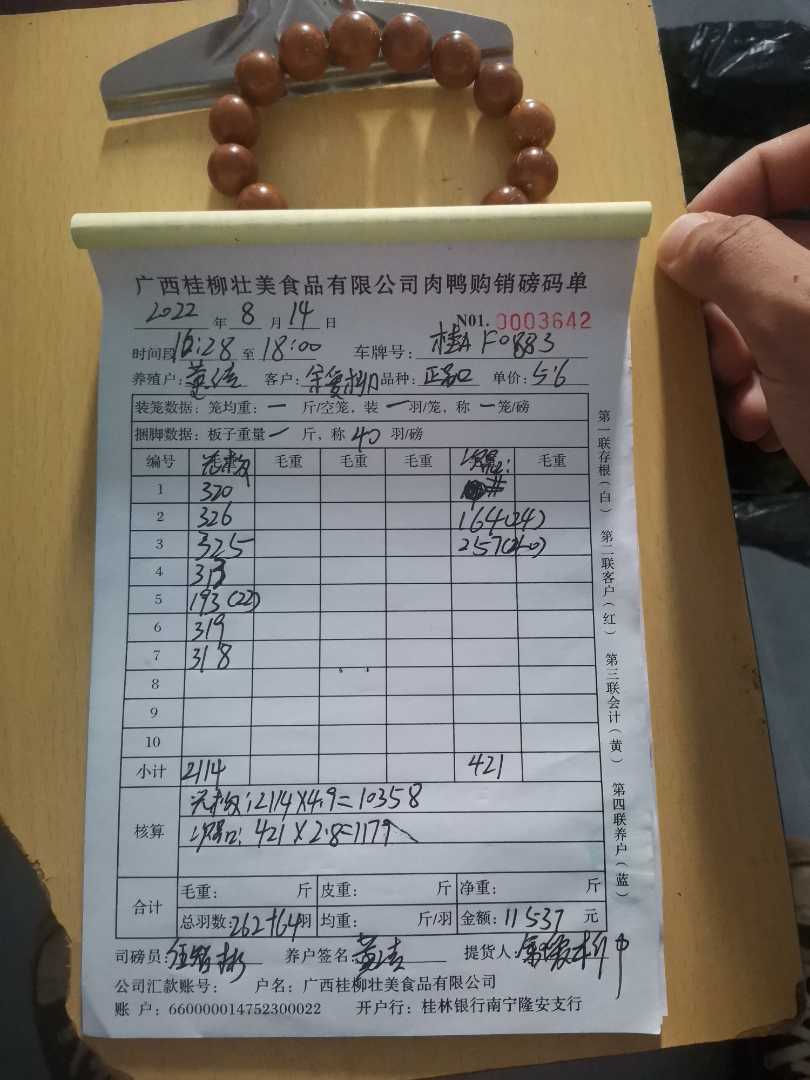 广西桂柳壮美食品有限公司肉鸭购销磅码单
2022 年 8 月 14 日 N01. 0003642
时间段 16:28 至 18:00 车牌号: 桂A F0883
养殖户: 客户: 品种: 单价: 5.6
装笼数据: 笼均重: 一 斤/空笼, 装 一 羽/笼, 称 一 笼/磅
捆脚数据: 板子重量 一 斤, 称 40 羽/磅
编号 毛重 毛重 毛重 毛重 毛重
1 320
2 326 164(24)
3 325 257(40)
4 313
5 193(22)
6 319
7 318
8
9
10
小计 2114 421
2114×4.9=10358
核算 421×2.8=1179
合计 毛重: 斤 皮重: 斤 净重: 斤
总羽数: 262+64 羽 均重: 斤/羽 金额: 11537 元
司磅员: 养户签名: 提货人:
公司汇款账号: 户名: 广西桂柳壮美食品有限公司
账 户: 660000014752300022 开户行: 桂林银行南宁隆安支行
第一联存根(白) 第二联客户(红) 第三联会计(黄) 第四联养户(蓝)